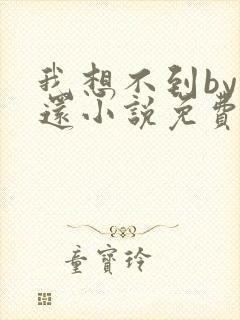 我想不到by
還小說免費
童寶玲